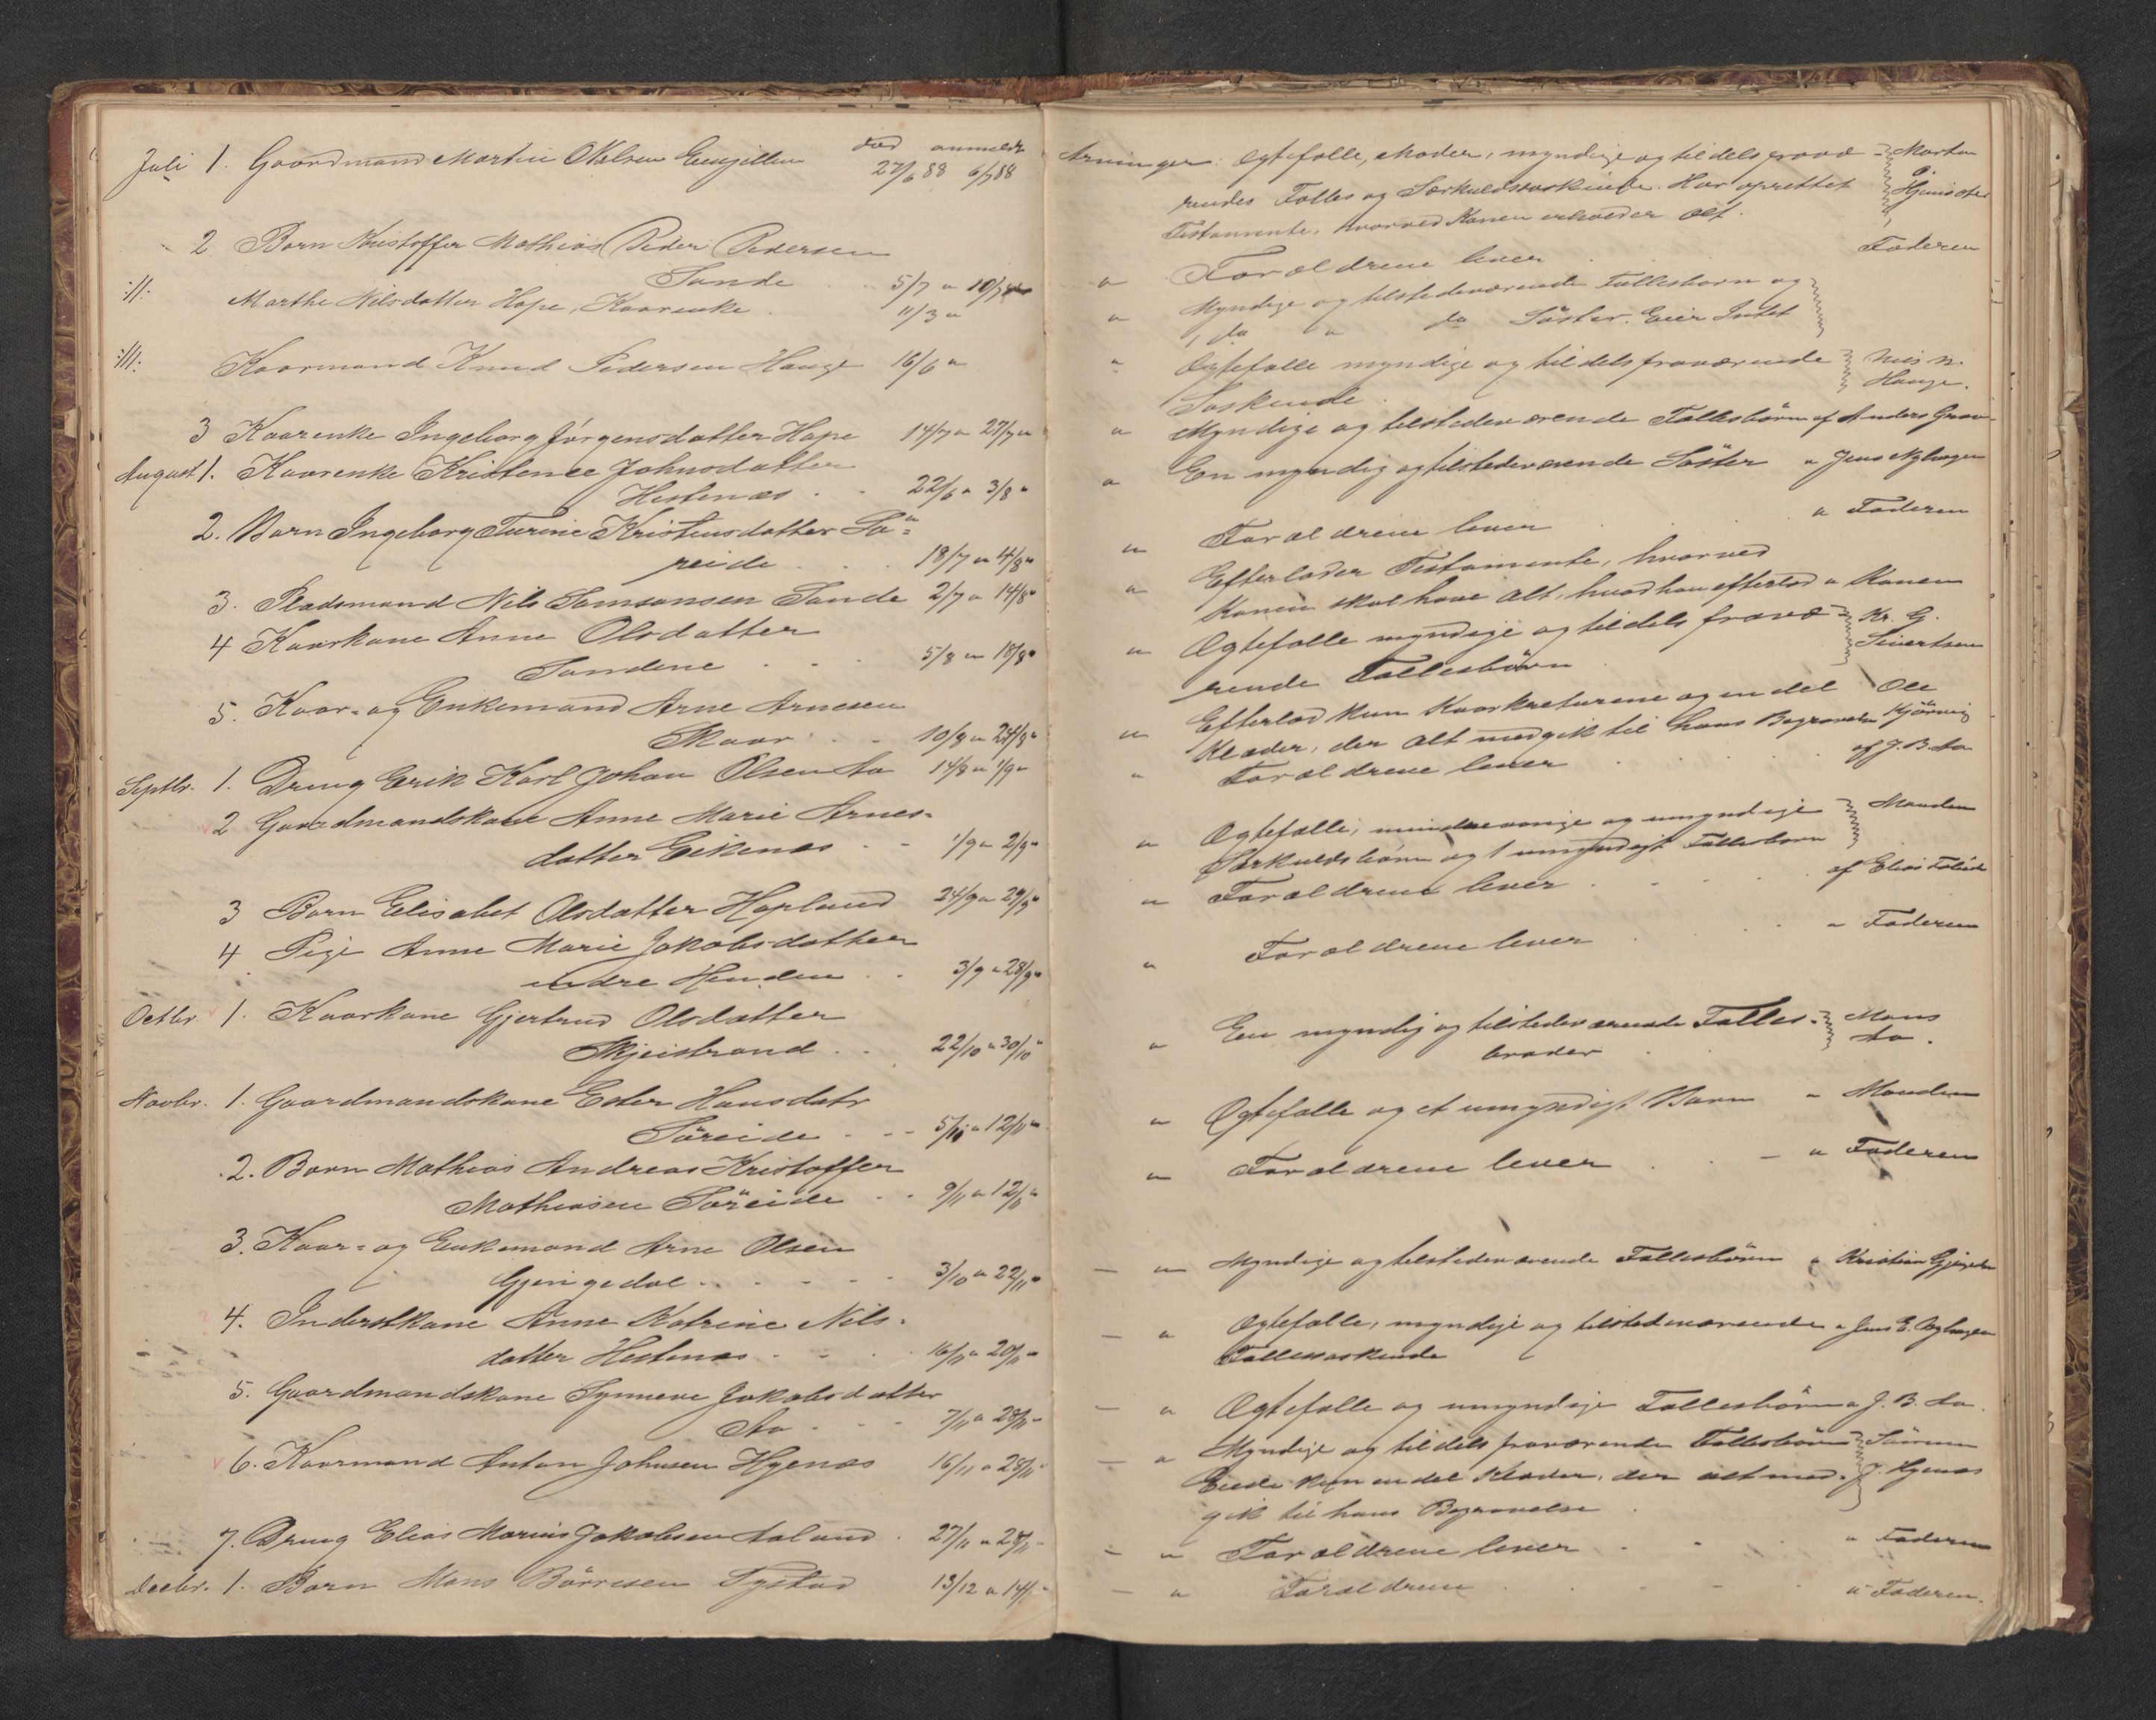 død anmeldt
Juli 1. Gaardmand Martin Olsen 27/6 88 6/7 88
2 Barn Kristoffer Mathias Peder Pedersen
Sande . . 5/7 " 10/7
:/|: Marthe Nilsdatter Hope, Kaarenke . 11/3 "
:/||: Kaarmand Knud Pedersen Hauge 16/6 "
3 Kaarenke Ingeborg Jørgensdatter Hope 14/7 " 27/7 "
August 1. Kaarenke Kristence Johnsdatter
Hestenæs . . 22/6 " 3/8 "
2. Barn Ingeborg Turine Kristensdatter Sö=
reide . . . 18/7 " 4/8 "
3. Pladsmand Nils Samsonsen Sande 2/7 " 14/8 "
4 Kaarkone Anne Olsdatter
Sandene . . . 5/8 " 18/8 "
5. Kaar- og Enkemand Arne Arnesen
Skaar . . . 10/8 " 24/8 "
Septbr. 1. Dreng Erik Karl Johan Olsen Aa 14/8 " 1/9 "
2 Gaardmandskone Anne Marie Arnes-
datter Eikenæs . . 1/9 " 2/9 "
3 Barn Elisabet Olsdatter Hopland 24/9 " 27/9 "
4 Pige Anne Marie Jakobsdatter
indre Henden . . 3/9 " 28/9 "
Octbr. 1. Kaarkone Gjertrud Olsdatter
Skjeistrand . . 22/10 " 30/10 "
Novbr. 1. Gaardmandskone Ester Hansdatr
Söreide . . . 5/11 " 12/11 "
2. Barn Mathias Andreas Kristoffer
Mathiasen Söreide . . 9/11 " 12/11 "
3. Kaar- og Enkemand Arne Olsen
Gjengedal . . . . . 3/10 " 22/11 "
4. Inderstkone Anne Katrine Nils-
datter Hestenæs . . . 16/11 " 20/11 "
5. Gaardmandskone Synneve Jakobsdatter
Aa . . . 7/11 " 28/11 "
6. Kaarmand Anton Johnsen Hyenæs 16/11 " 28/11 "
7. Dreng Elias Marius Jakobsen Aaland . 27/11 " 28/11 "
Decbr. 1. Barn Mons Börresen Rygstad 13/12 " 14/
Arvinger: Ægtefælle, Moder, myndige og tildels fravæ-
rendes Fælles og Særkuldssøskende. Har oprettet
Testamente, hvorved Konen erholder Alt.
" Forældrene lever . . Faderen
" Myndige og tilstedeværende Fællesbørn og
1 do " do Söster. Eier Intet
" Ægtefælle myndige og tildels fraværende Nils N.
Søskende. Hauge.
" Myndige og tilstedeværende Fællesbörn af Anders
" En myndig og tilstedeværende Söster " Jens Myhagen
" Forældrene lever . . . " Faderen
" Efterlader Testamente, hvorved
Konen skal have Alt, hvad han efterlod " Konen
" Ægtefælle myndige og tildels fravæ- Kr. G.
rende Fællesbörn Sivertsen
" Efterlod kun Kaarkreturene og en del Ole
Klæder, der Alt medgik til hans Begravelse
" Forældrene lever . . . . af J. B. Aa
" Ægtefælle, mindreaarige og umyndige Manden
Særkuldsbörn og 1 umyndigt Fællesbarn
" Forældrene lever . . . . af Elias
" Forældrene lever . . . " Faderen
" En myndig og tilstedeværende Fælles- Mons
broder . . Aa.
" Ægtefælle og et umyndigt Barn " Manden
" Forældrene lever . . - " Faderen
" Myndige og tilstedeværende Fællesbörn " Kristian
" Ægtefælle, myndige og tilstedeværende " Jens E. Myhagen
Fællessøskende
" Ægtefælle og umyndige Fællesbörn " J. B. Aa.
" Myndige og tildels fraværende Fællesbörn
Eiede kun en del Klæder, der alt med- J. Hyenæs
gik til hans Begravelse .
" Forældrene lever . . . " Faderen
" Forældrene . . . . " Faderen.